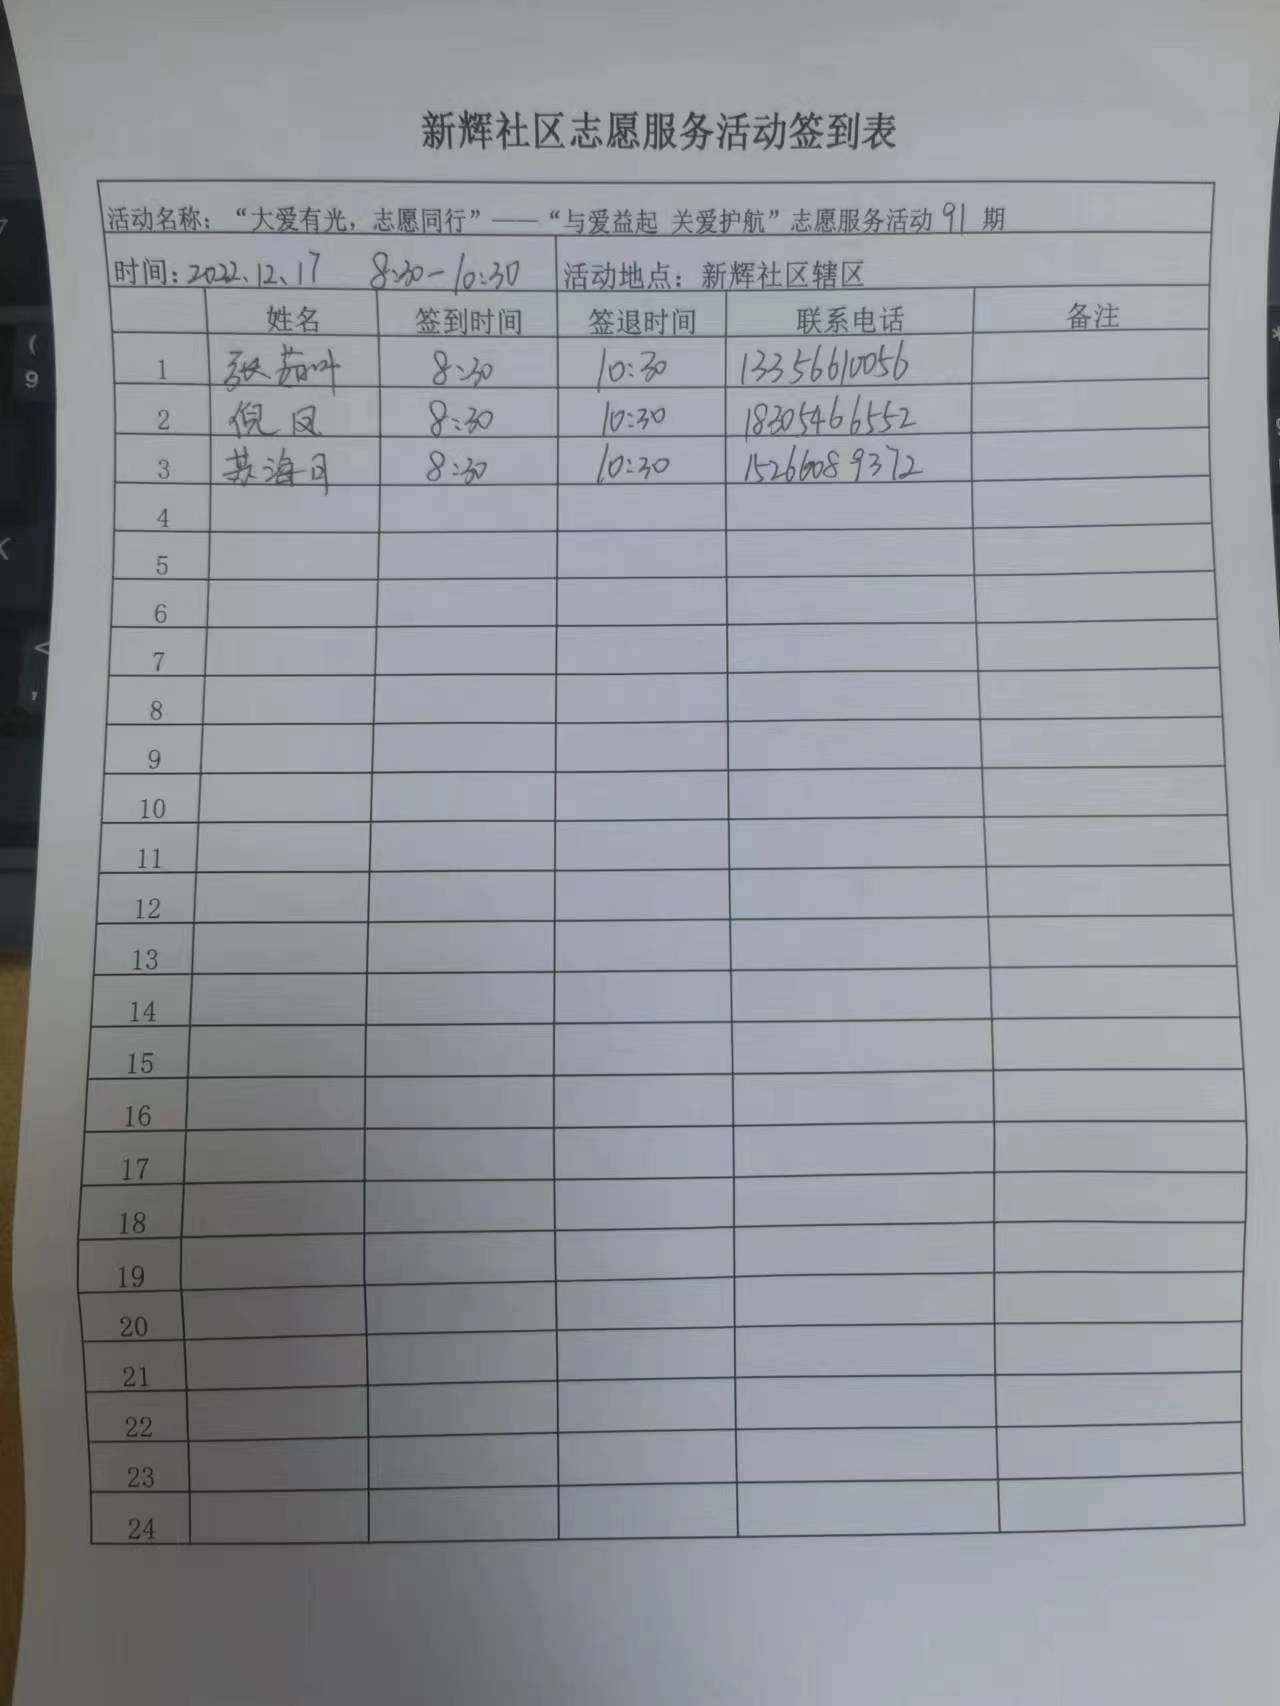 新辉社区志愿服务活动签到表
活动名称：“大爱有光，志愿同行”——“与爱益起 关爱护航”志愿服务活动 91 期
时间：2022、12、17 8:30-10:30 活动地点：新辉社区辖区
姓名 签到时间 签退时间 联系电话 备注
1 张茹叶 8:30 10:30 13356610056
2 倪凤 8:30 10:30 18305466552
3 苏海月 8:30 10:30 15266089372
4
5
6
7
8
9
10
11
12
13
14
15
16
17
18
19
20
21
22
23
24